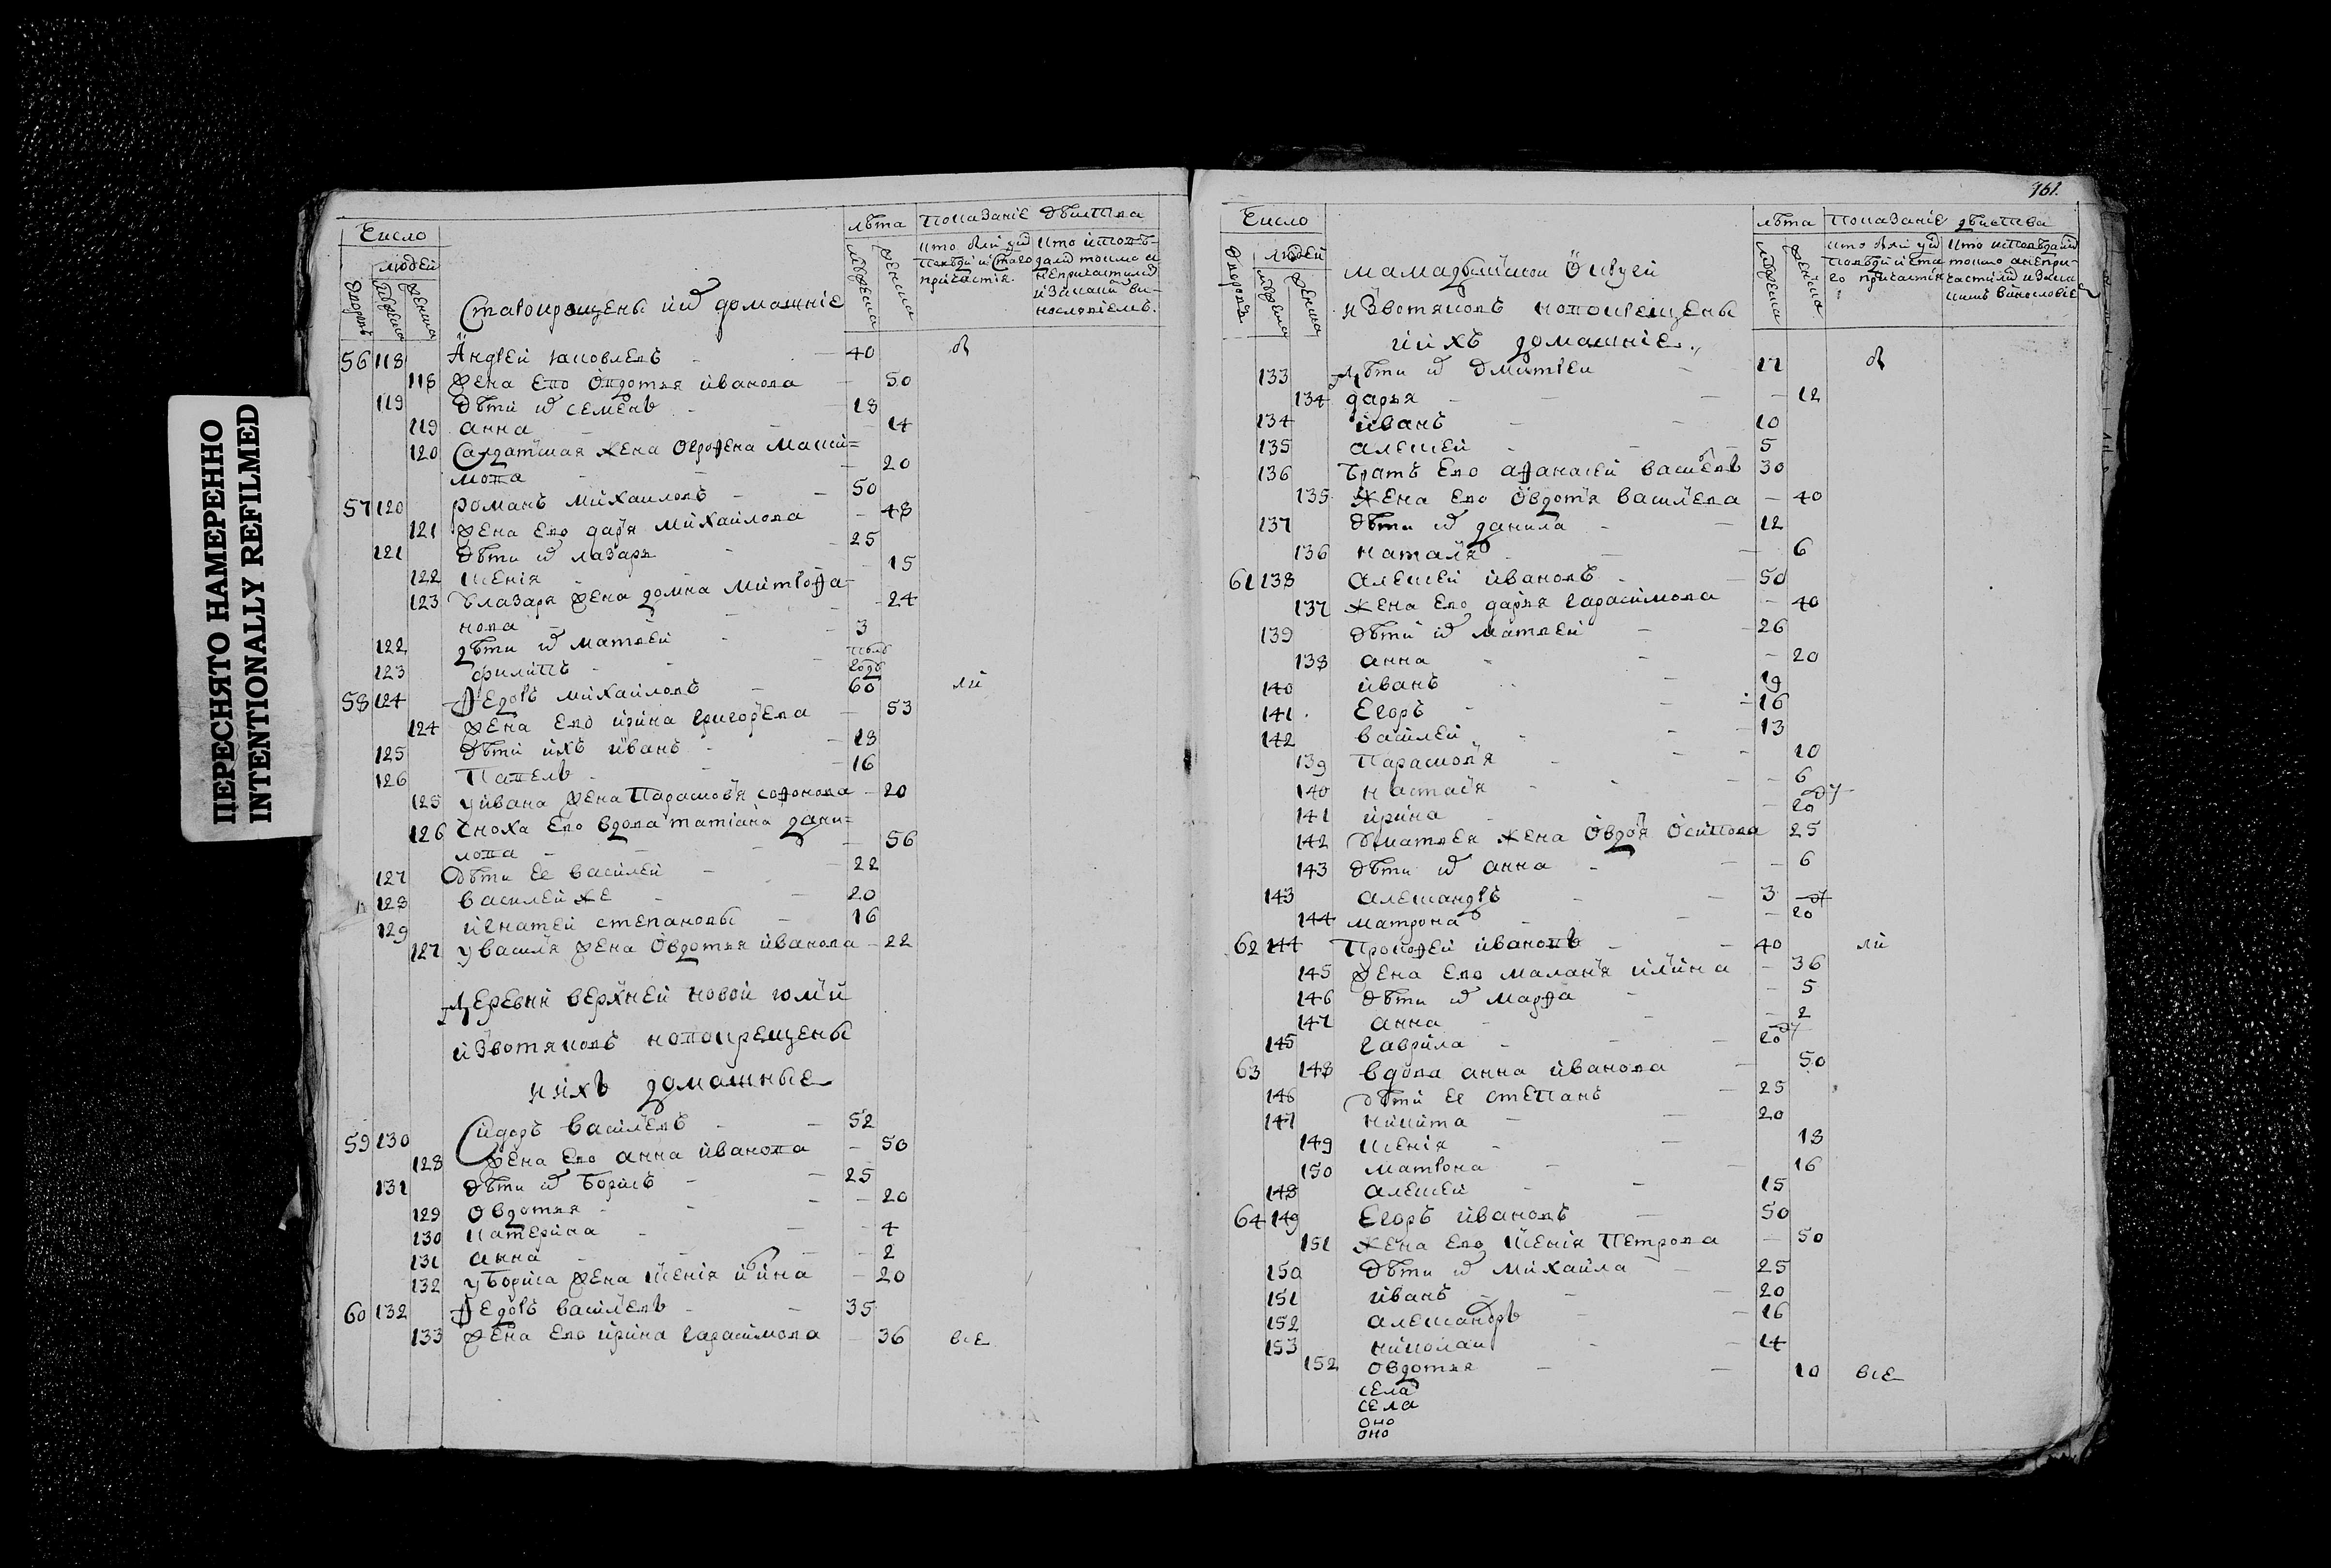 ПЕРЕСНЯТО НАМЕРЕННО
INTENTIONALLY REFILMED
Число
людей
лѣта
показаніе действа
Старокрещены ихъ домашніе
56 118 Андрей яковлевъ - 40
118 жена ево овдотья иванова - 50
119 дѣти их семенъ - 18
119 анна - 14
120 Салдатская жена Огрофена Макси=
мова - 20
57 120 романъ михаиловъ - 50
121 жена ево даря михайлова - 48
121 дѣти их лазарь - 25
122 ксенія - 15
123 Ѹ лазаря жена домна митрофа-
нова - 24
122 дѣти их матвей - 3
123 филипъ - полъ
годъ
58 124 Ѳедоръ михаиловъ - 60
124 жена ево ирина григорева - 53
125 дѣти ихъ иванъ - 18
126 Павелъ - 16
125 у ивана жена Парасковя софонова - 20
126 Сноха ево вдова татіана дани=
лова - 56
127 дѣти ее василей - 22
128 василей же - 20
129 игнатей степановы - 16
127 у василя жена овдотья иванова - 22
Деревни верхней новой юмьи
извотяковъ новокрещены
и ихъ домашные
59 130 Сидоръ васильевъ - 52
128 жена ево анна иванова - 50
131 дѣти их борисъ - 25
129 овдотья - 20
130 катерина - 4
131 анна - 2
132 у бориса жена ксенія - 20
60 132 Ѳедоръ васильевъ - 35
133 жена ево ирина гарасимова - 36 все
161.
Число
людей
лѣта
показаніе действа
мамадышской округи
извотяковъ новокрещены
и ихъ домашніе
133 дѣти их дмитрей - 17
134 дарья - 12
134 иванъ - 10
135 алексей - 5
136 братъ ево афанасей василевъ 30
135 жена ево овдотя василева - 40
137 дѣти их данила - 12
136 наталя - 6
61 138 алексей ивановъ - 50
137 жена ево дарья гарасимова - 40
139 дѣти их матвей - 26
138 анна - 20
140 иванъ - 19
141 Егоръ - 16
142 василей - 13
139 Парасковя - 10
140 настася - 6
141 ирина - 20
142 Ѹ матвея жена овдотя осипова 25
143 дѣти их анна - 6
143 александръ - 3
144 матрона - 20
62 144 Прокофей ивановъ - 40
145 жена ево маланя илина - 36
146 дѣти их марфа - 5
147 анна - 2
145 гаврила - 20
63 148 вдова анна иванова - 50
146 дѣти ее степанъ - 25
147 никита - 20
149 ксенія - 18
150 матрона - 16
148 алексей - 15
64 149 Егоръ ивановъ - 50
151 жена ево ксенія петрова - 50
150 дѣти их михаила - 25
151 иванъ - 20
152 александръ - 16
153 николай - 14
152 овдотья - 10 все
села
села
оно
оно